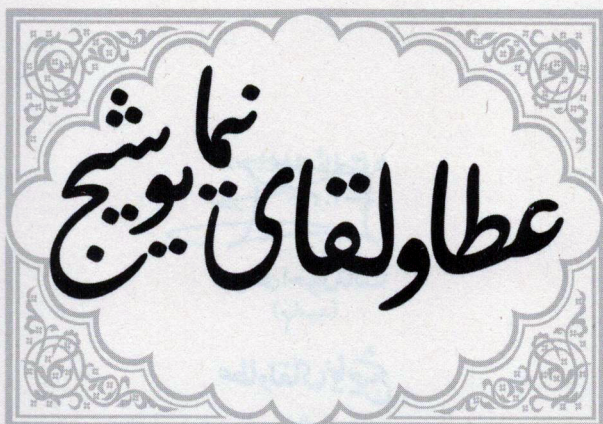 عطا و لقای نیما یوشیج